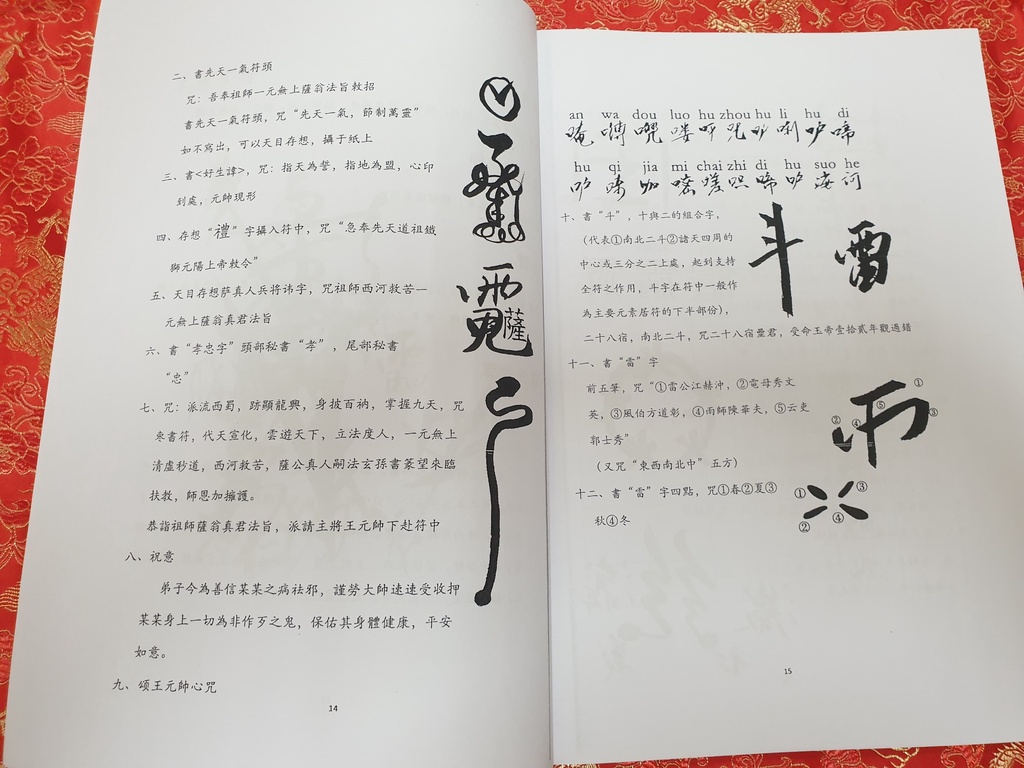 二、書先天一氣符頭
咒：吾奉祖師一元無上薩翁法旨敕招
書先天一氣符頭，咒“先天一氣，節制萬靈”
如不寫出，可以天目存想，攝于紙上
三、書<好生諱>，咒：指天為誓，指地為盟，心印
到處，元帥現形
四、存想“禮”字攝入符中，咒“急奉先天道祖鐵
獅元陽上帝敕令”
五、天目存想萨真人兵将讳字，咒祖師西河救苦一
元無上薩翁真君法旨
六、書“孝忠字”頭部秘書“孝”，尾部秘書
“忠”
七、咒：派流西蜀，跡顯龍興，身披百衲，掌握九天，咒
來書符，代天宣化，雲遊天下，立法度人，一元無上
清虛秒道，西河救苦，薩公真人嗣法玄孫書篆望來臨
扶教，師恩加擁護。
恭詣祖師薩翁真君法旨，派請主將王元帥下赴符中
八、祝意
弟子今為善信某某之病祛邪，謹勞大帥速速受收押
某某身上一切為非作歹之鬼，保佑其身體健康，平安
如意。
九、頌王元帥心咒
薩
14
an wa dou luo hu zhou hu li hu di
hu qi jia mi chai zhi di hu suo he
十、書“斗”，十與二的組合字，
（代表①南北二斗②諸天四周的
中心或三分之二上處，起到支持
全符之作用，斗字在符中一般作
為主要元素居符的下半部份），
二十八宿，南北二斗，咒二十八宿靈君，受命玉帝壹拾貳年觀過錯
斗 雷
十一、書“雷”字
前五筆，咒“①雷公江赫沖，②電母秀文
英，③風伯方道彰，④雨師陳華夫，⑤云吏
郭士秀”
（又咒“東西南北中”五方）
① ② ③ ④ ⑤
十二、書“雷”字四點，咒①春②夏③
秋④冬
① ③
② ④
15